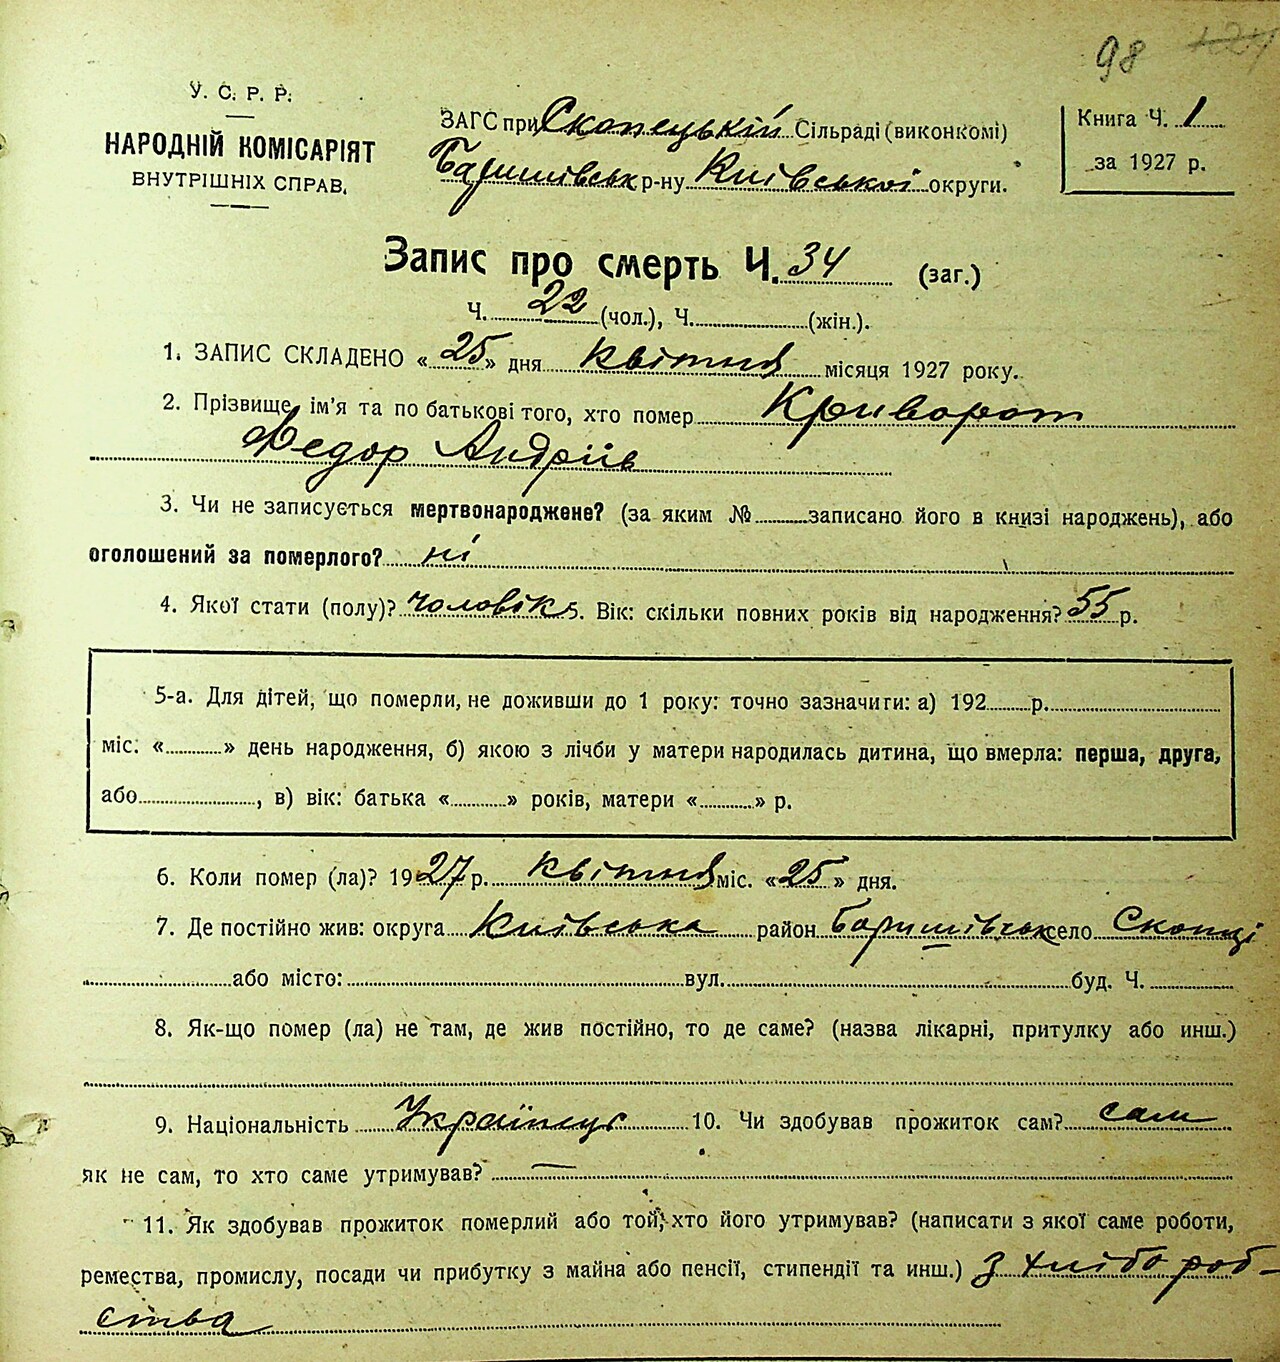 98 124
У. С. Р. Р.
НАРОДНІЙ КОМІСАРІЯТ
ВНУТРІШНІХ СПРАВ.
ЗАГС при Скопецькій Сільраді (виконкомі)
Баришівськ р-ну Київської округи.
Книга Ч. 1
за 1927 р.
Запис про смерть Ч. 34 (заг.)
Ч. 22 (чол.), Ч. (жін.).
1. ЗАПИС СКЛАДЕНО «25» дня квітня місяця 1927 року.
2. Прізвище, ім'я та по батькові того, хто помер Криворот
Федор Андріїв
3. Чи не записується мертвонароджене? (за яким № записано його в книзі народжень), або
оголошений за померлого? ні
4. Якої стати (полу)? чоловік 5. Вік: скільки повних років від народження? 55 р.
5-а. Для дітей, що померли, не доживши до 1 року: точно зазначити: а) 192 р.
міс. « » день народження, б) якою з лічби у матери народилась дитина, що вмерла: перша, друга,
або , в) вік: батька « » років, матери « » р.
6. Коли помер (ла)? 1927 р. квітня міс. «25» дня.
7. Де постійно жив: округа Київська район Баришівськ село Скопці
або місто: вул. буд. Ч.
8. Як-що помер (ла) не там, де жив постійно, то де саме? (назва лікарні, притулку або инш.)
9. Національність Українець 10. Чи здобував прожиток сам? сам
як не сам, то хто саме утримував? —
11. Як здобував прожиток померлий або той, хто його утримував? (написати з якої саме роботи,
ремества, промислу, посади чи прибутку з майна або пенсії, стипендії та инш.) З хлібороб-
ства